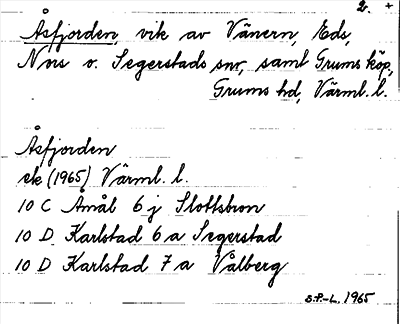 2. +
Åsfjorden, vik av Vänern, Eds,
Nors o. Segerstads snr, samt Grums köp,
Grums hd, Värml. l.
Åsfjorden
ek (1965) Värml. l.
10 C Åmål 6 j Slottsbron
10 D Karlstad 6 a Segerstad
10 D Karlstad 7 a Vålberg
S.P-L. 1965